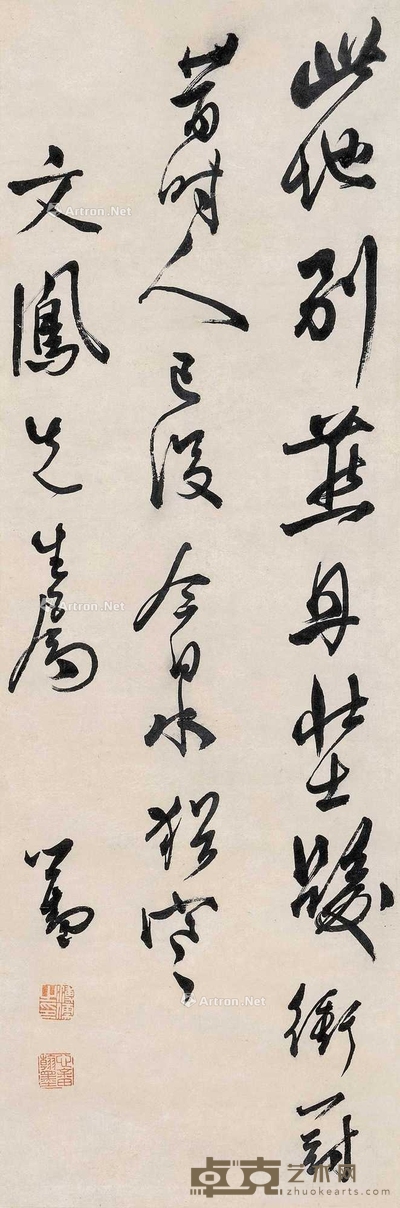 此地别燕丹壮士发冲冠
昔时人已没今日水犹寒
文鳳先生屬
Artron.Net
Artron.Net
Artron.Net
Artron.Net
卓克艺术网
www.zhuokearts.com